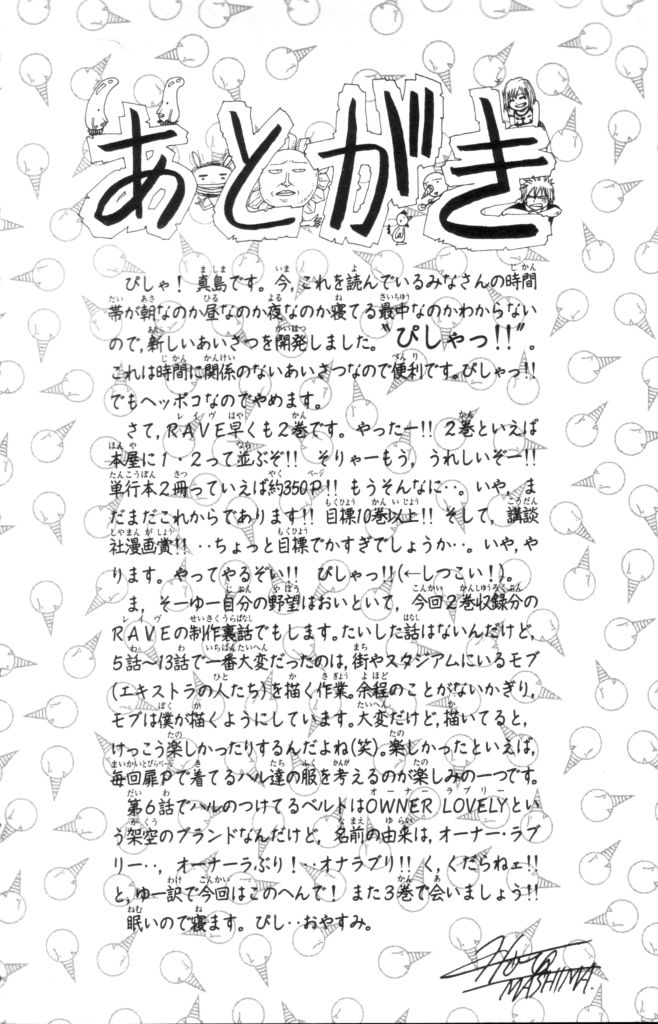 あとがき
ぴしゃ！ 真島です。今、これを読んでいるみなさんの時間
帯が朝なのか昼なのか夜なのか寝てる最中なのかわからない
ので、新しいあいさつを開発しました。“ぴしゃっ!!”。
これは時間に関係のないあいさつなので便利です。ぴしゃっ!!
でもヘッポコなのでやめます。
さて、RAVE早くも2巻です。やったー!! 2巻といえば
本屋に1・2って並ぶぞ!! そりゃーもう、うれしいぞー!!
単行本2冊っていえば約350P!! もうそんなに‥。いや、ま
だまだこれからであります!! 目標10巻以上!! そして、講談
社漫画賞!! ‥ちょっと目標でかすぎでしょうか‥。いや、や
ります。やってやるぞい!! ぴしゃっ!!(←しつこい！)。
ま、そーゆー自分の野望はおいといて、今回2巻収録分の
RAVEの制作裏話でもします。たいした話はないんだけど、
5話〜13話で一番大変だったのは、街やスタジアムにいるモブ
(エキストラの人たち)を描く作業。余程のことがないかぎり、
モブは僕が描くようにしています。大変だけど、描いてると、
けっこう楽しかったりするんだよね(笑)。楽しかったといえば、
毎回扉Pで着てるハル達の服を考えるのが楽しみの一つです。
第6話でハルのつけてるベルトはOWNER LOVELYとい
う架空のブランドなんだけど、名前の由来は、オーナー・ラブ
リー‥、オーナーラぶり！‥オナラブリ!! く、くだらねェ!!
と、ゆー訳で今回はこのへんで！ また3巻で会いましょう!!
眠いので寝ます。ぴし‥おやすみ。
MASHIMA.